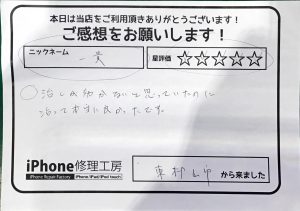 本日は当店をご利用頂きありがとうございます！
ご感想をお願いします！
ニックネーム
一貴
星評価 ☆☆☆☆☆
治しが効かないと思っていたのに
治って本当に良かったです。
iPhone修理工房
iPhone Repair Factory iPhone/iPad/iPod touch
東村山市 から来ました